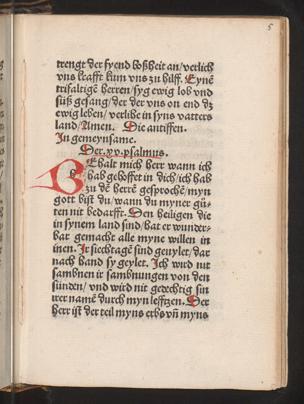 5
trengt der fyend boßheit an/verlich
vns krafft kum vns zu hilff. Eynē
trifaltigē herren/syg ewig lob vnd
süß gesang/der der vns on end dz
ewig leben/verlihe in syns vatters
land/Amen. Die antiffen.
In gemeynsame.
Der.xv.psalmus.
Behalt mich herr wann ich
hab gehoffet in dich/ich hab
zu dē herrē gesprochē/myn
gott bist du/wann du myner gü-
ten nit bedarfft. Den heiligen die
in synem land sind/hat er wunder-
bar gemacht alle myne willen in
inen. Ir siechtagē sind geuylet/dar
nach hand sy geylet. Ich wird nit
samblen ir samblungen von den
sünden/vnd wird nit gedechtig sin
irer namē durch myn lefftzen. Der
herr ist der teil myns erbs vn̄ myns